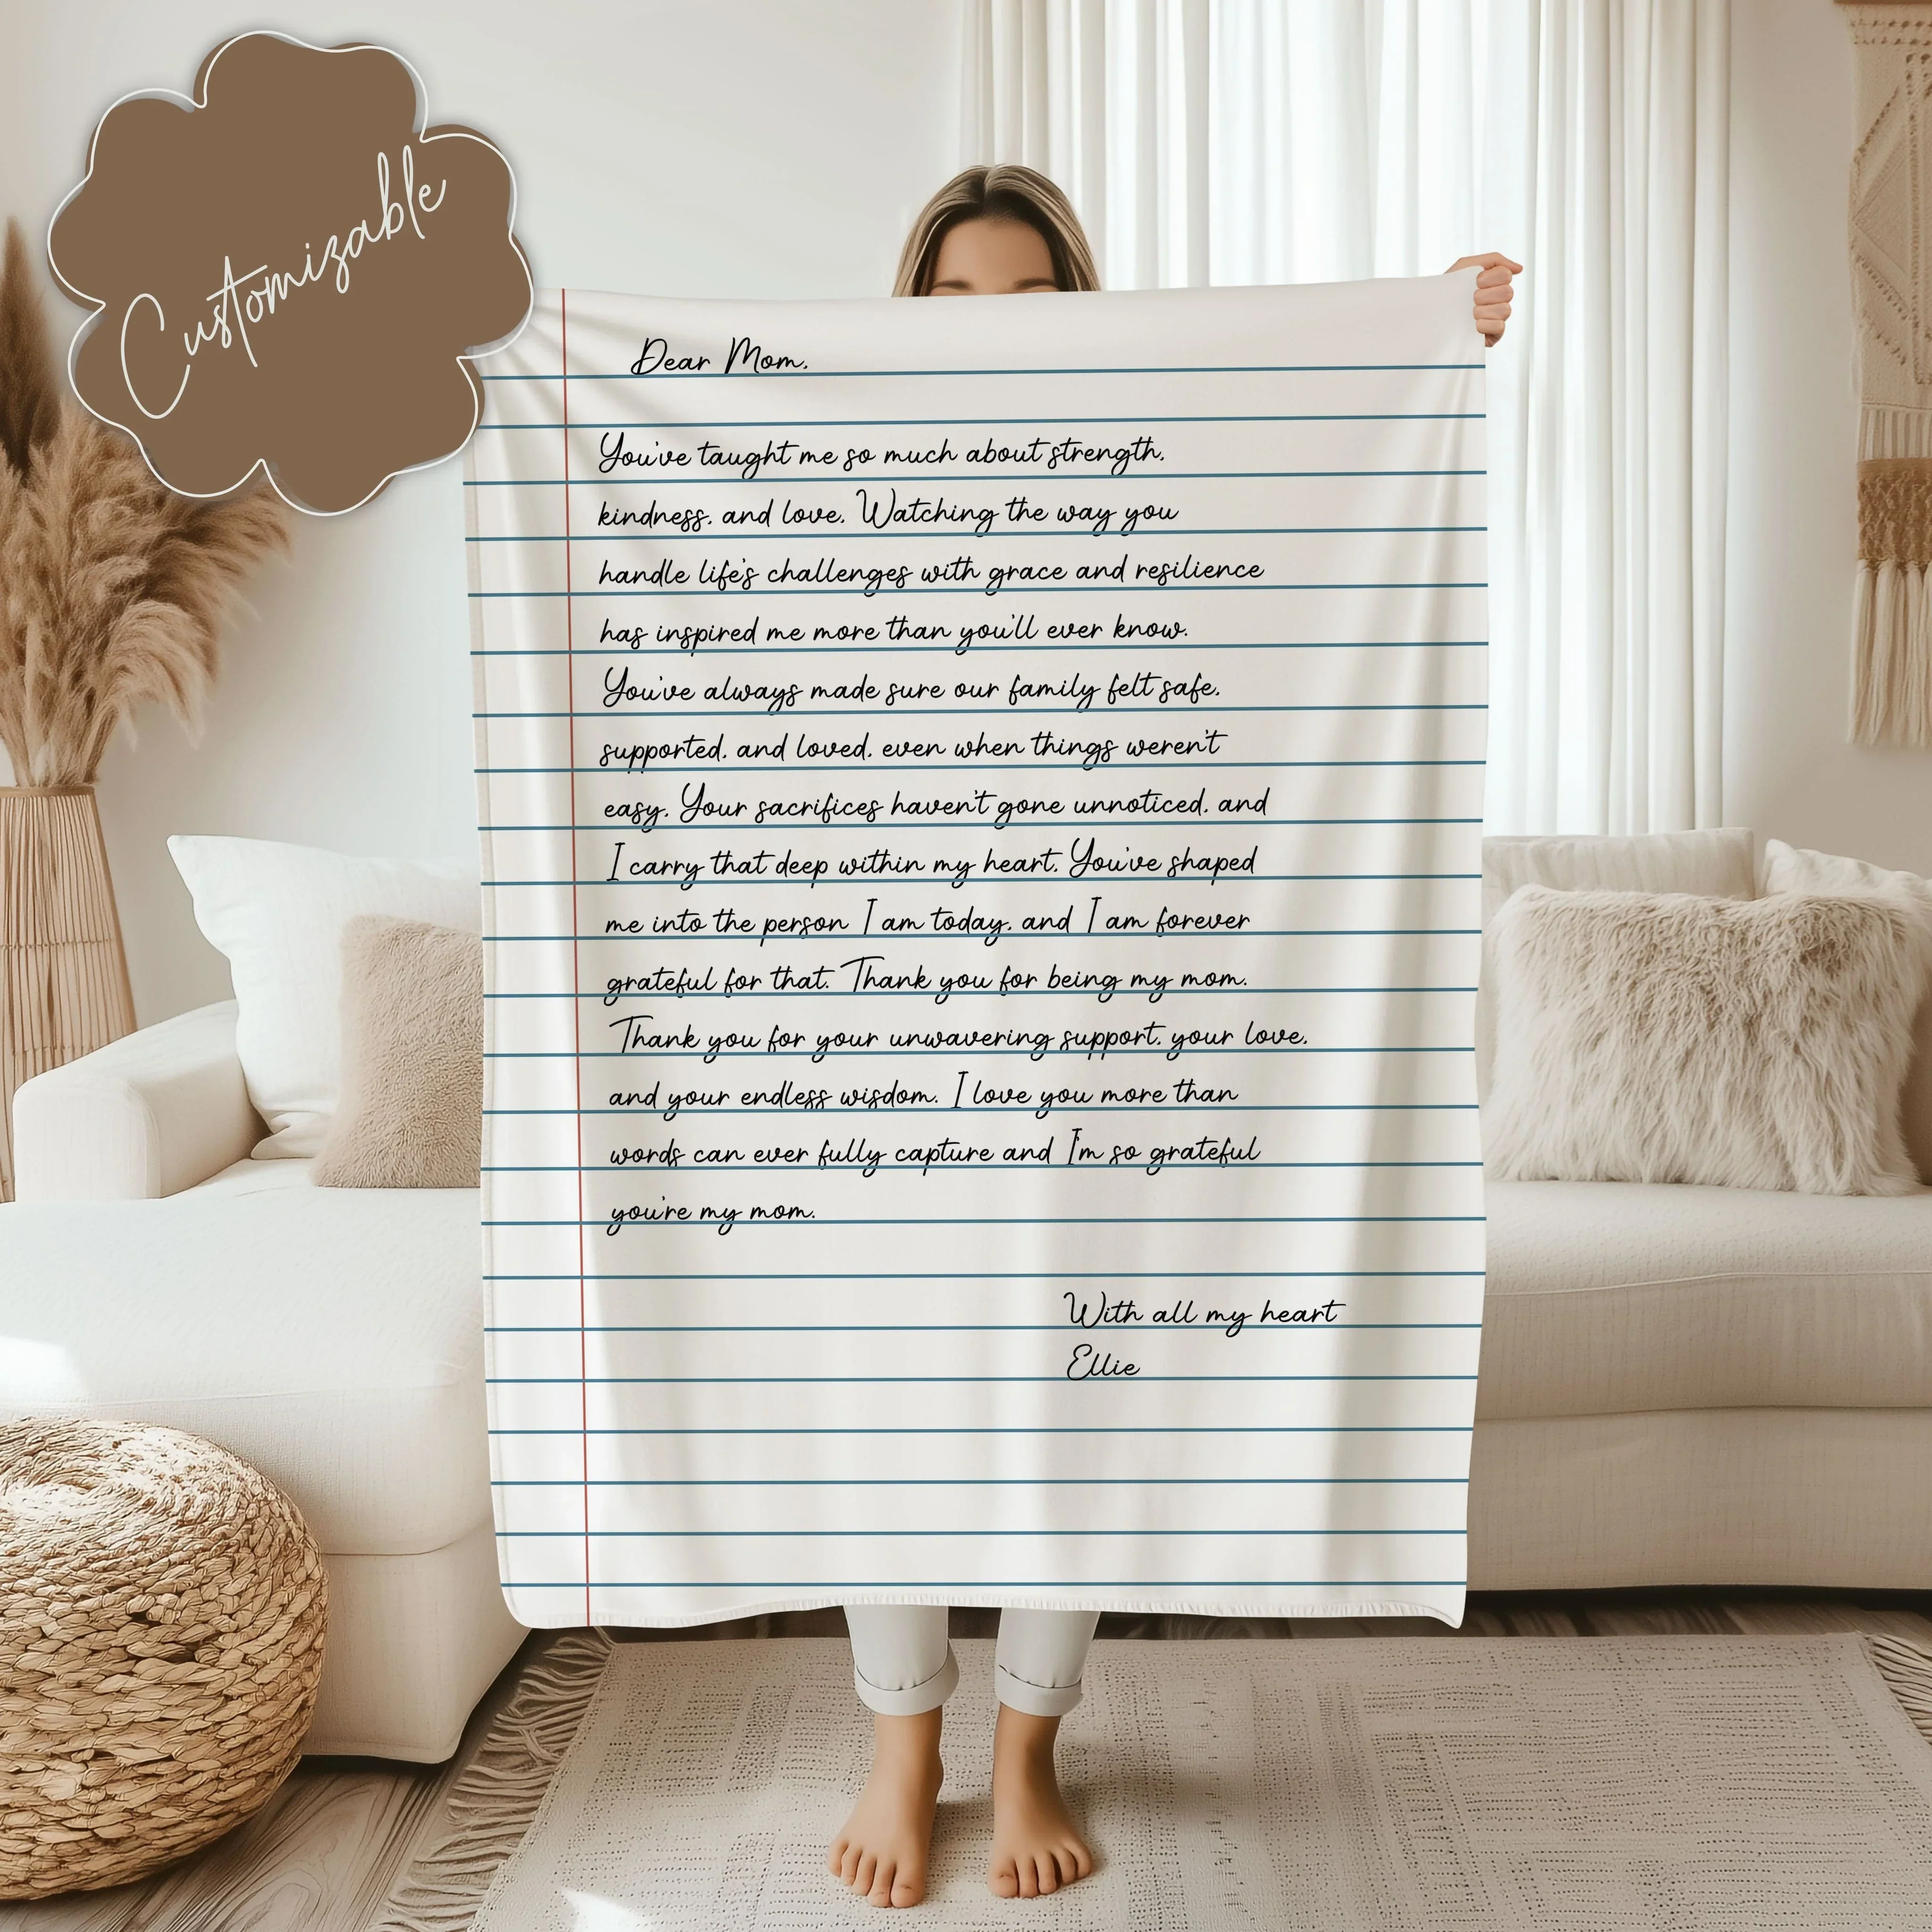 Customizable
Dear Mom,
You've taught me so much about strength,
kindness, and love. Watching the way you
handle life's challenges with grace and resilience
has inspired me more than you'll ever know.
You've always made sure our family felt safe,
supported, and loved, even when things weren't
easy. Your sacrifices haven't gone unnoticed, and
I carry that deep within my heart. You've shaped
me into the person I am today, and I am forever
grateful for that. Thank you for being my mom.
Thank you for your unwavering support, your love,
and your endless wisdom. I love you more than
words can ever fully capture and I'm so grateful
you're my mom.
With all my heart
Ellie